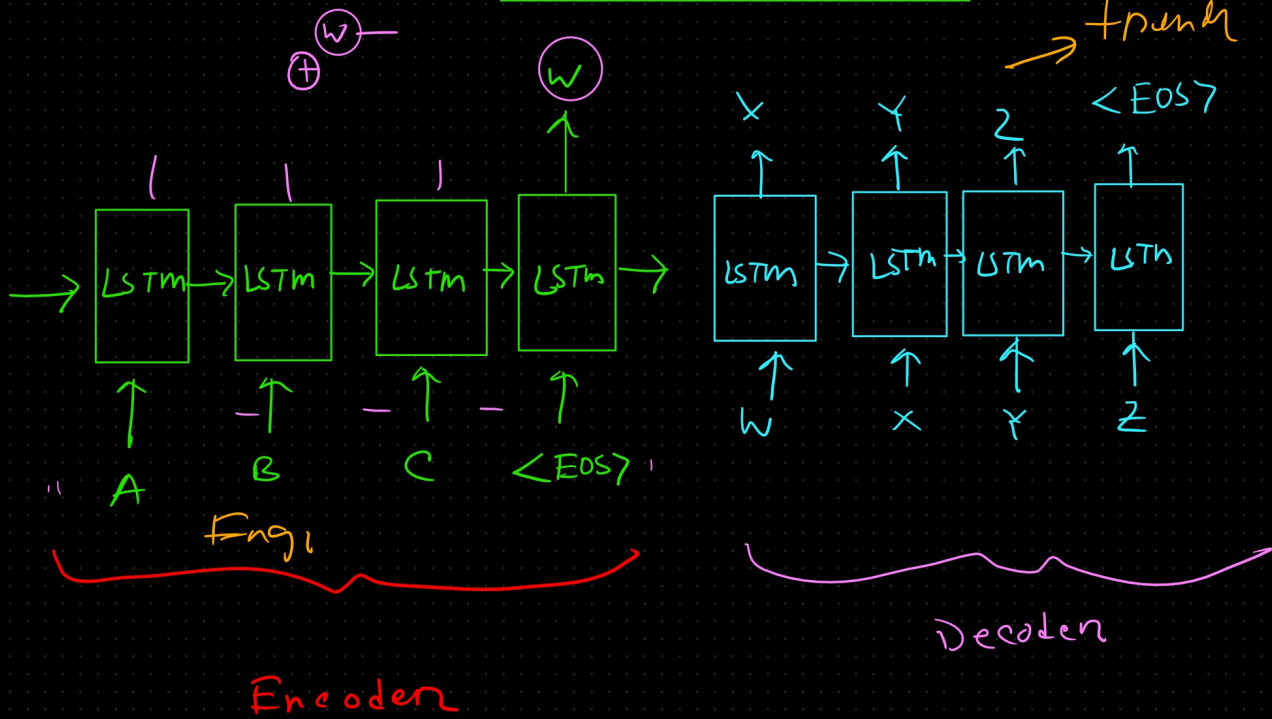 W
+
French
W
X
Y
Z
<EOS>
LSTM
LSTM
LSTM
LSTM
LSTM
LSTM
LSTM
LSTM
A
B
C
<EOS>
W
X
Y
Z
Engl
Decoder
Encoder